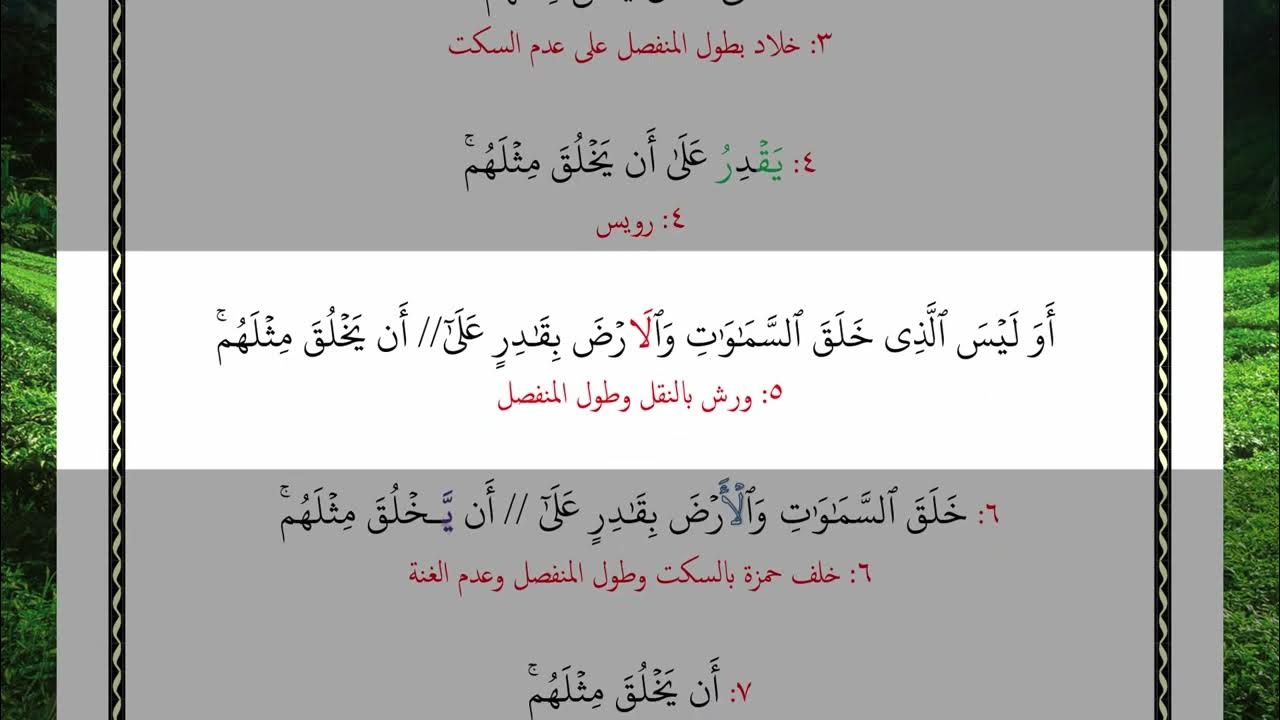 ٣: خلاد بطول المنفصل على عدم السكت
٤: يَقْدِرُ عَلَىٰ أَن يَخْلُقَ مِثْلَهُمۚ
٤: رويس
أَوَ لَيْسَ ٱلَّذِى خَلَقَ ٱلسَّمَٰوَٰتِ وَٱلَارْضَ بِقَٰدِرٍ عَلَىٰٓ// أَن يَخْلُقَ مِثْلَهُمۚ
٥: ورش بالنقل وطول المنفصل
٦: خَلَقَ ٱلسَّمَٰوَٰتِ وَٱلْأَرْضَ بِقَٰدِرٍ عَلَىٰٓ // أَن يَّخْلُقَ مِثْلَهُمۚ
٦: خلف حمزة بالسكت وطول المنفصل وعدم الغنة
٧: أَن يَخْلُقَ مِثْلَهُمۚ